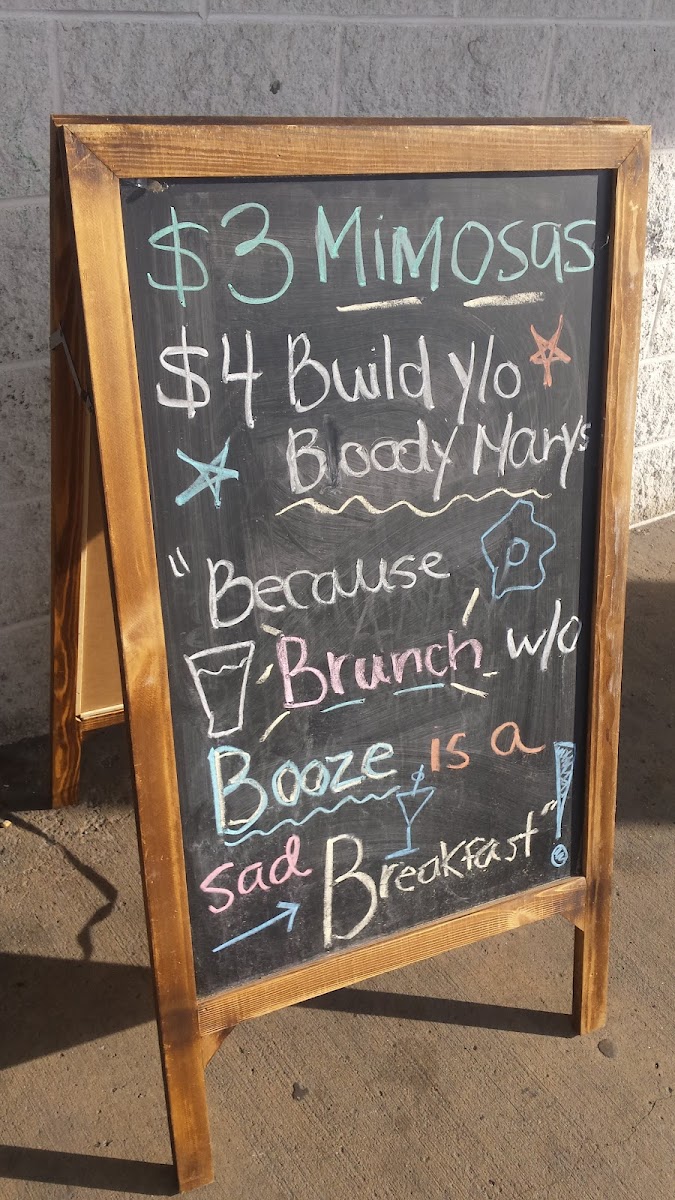 $3 Mimosas
$4 Build y/o
Bloody Marys
"Because
Brunch w/o
Booze is a
sad Breakfast"!